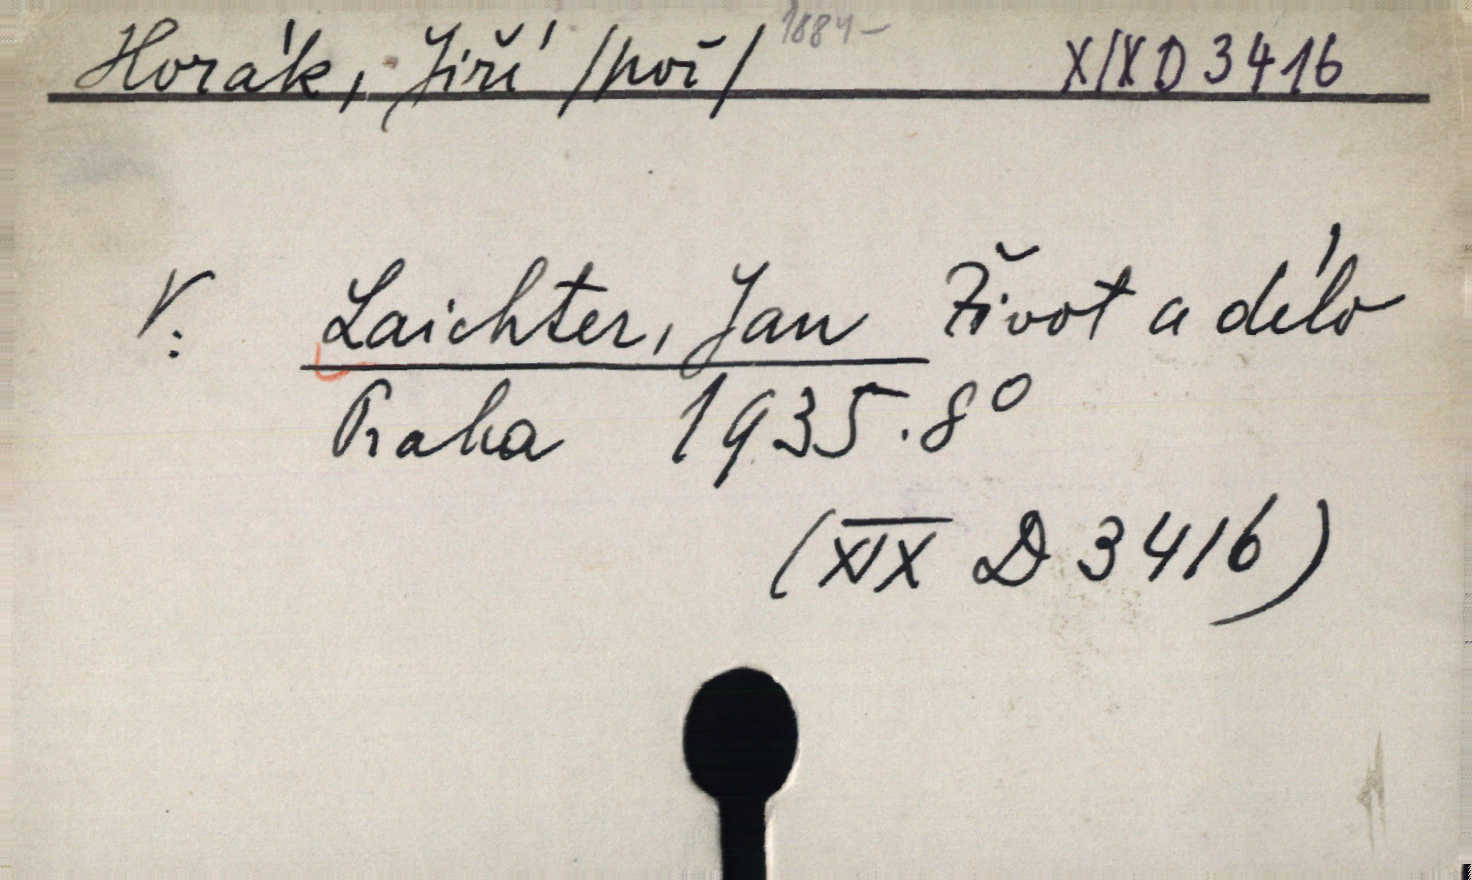 Horák, Jiří /poř/ 1884- XIX D 3416
V: Laichter, Jan Život a dílo
Praha 1935. 8°
(XIX D 3416)